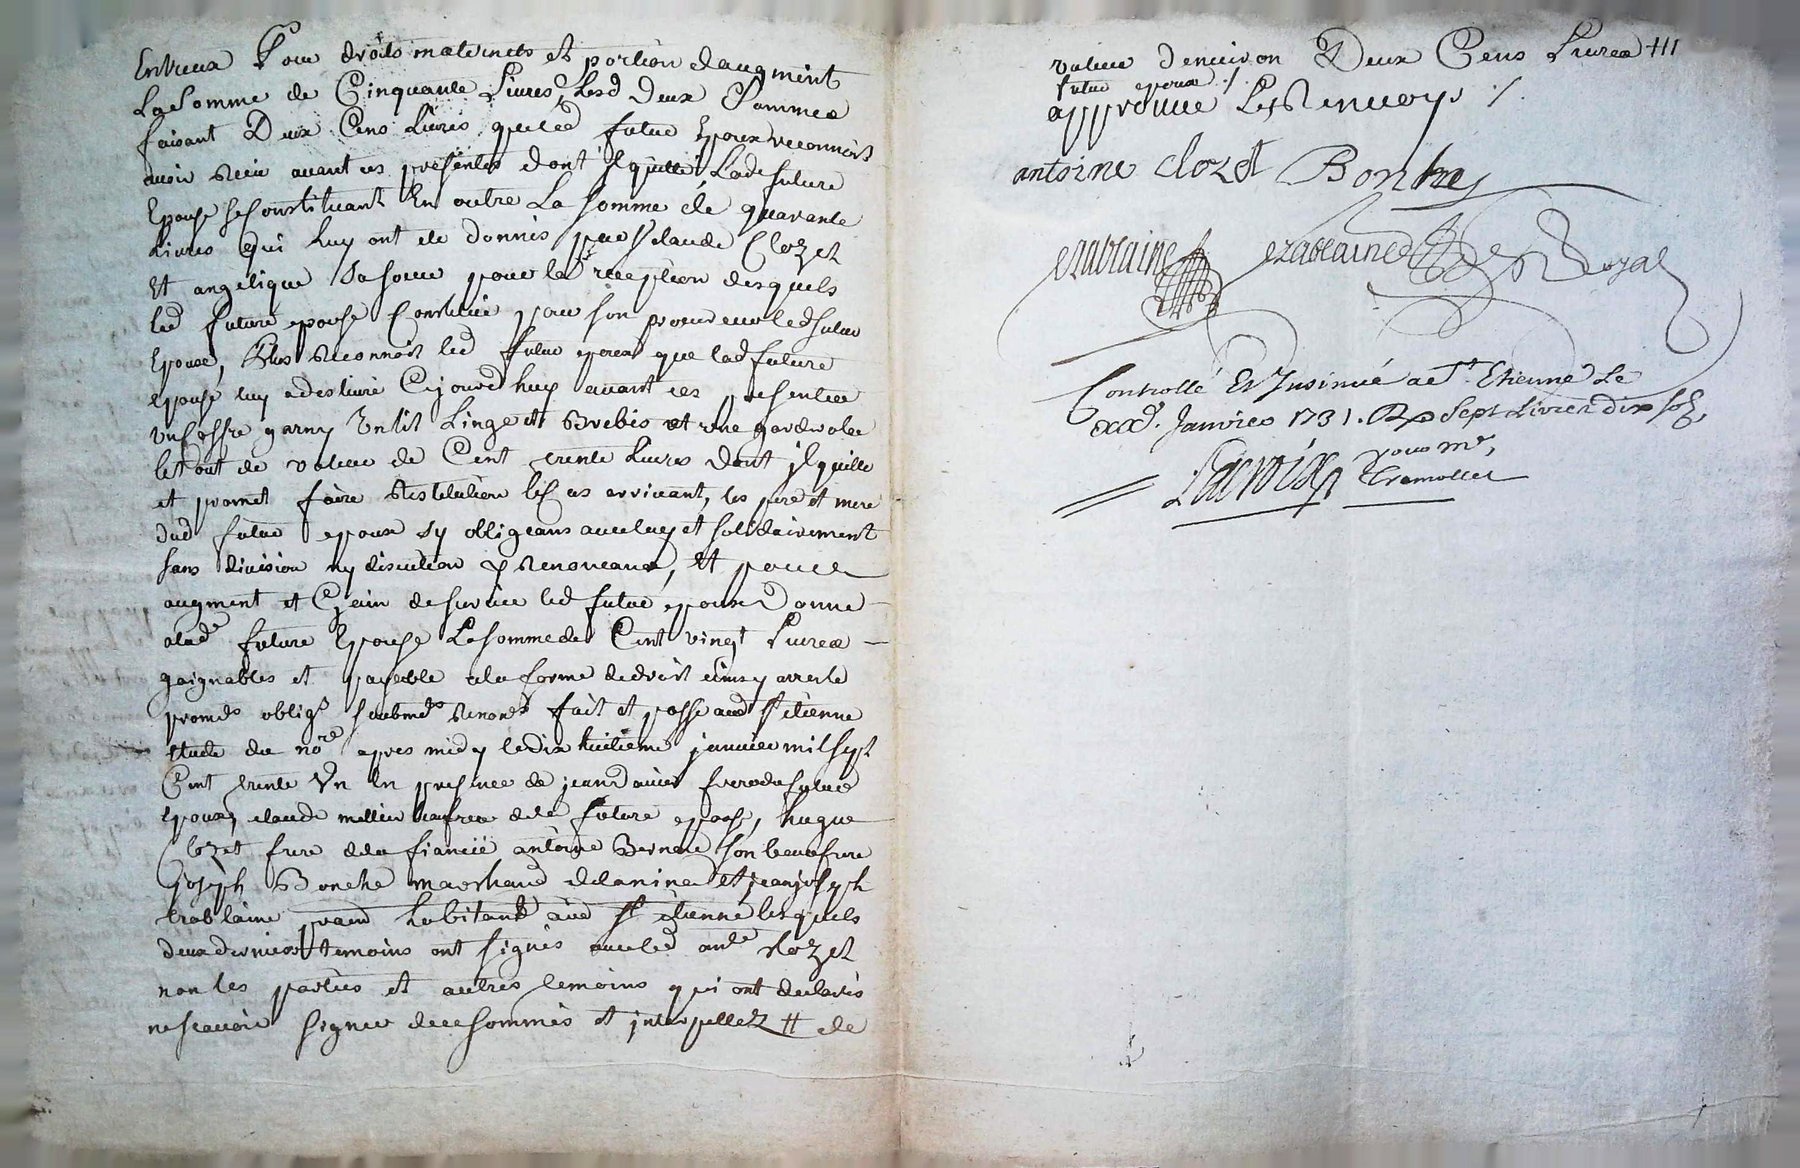 Entreux Pour droits maternels et portion daugment
La Somme de Cinquante Livres, Lesd Deux Sommes
faisant Deux Cens Livres, queled futur Epoux reconnoit
avoir Receu avant ces presentes dont il quitte, Lade future
Epouse se Constituant En outre La Somme de quarante
Livres qui Luy ont ete donnés par Claude Clozet
Et angelique Sa soeur pour la reception desquels
lad future epouse Constitue pour son procureur led futur
Epoux, Plus Reconnoit led futur epoux que lad future
epouse luy a deslivré Cejourdhuy avant ces presentes
un coffre garny Un lit Linge et Brebis et une garderobe
le tout de valeur de Cent trente Livres dont il quitte
et promet faire Restitution le cas arrivant, les pere et mere
dud futur epoux sy obligeans avecluy et solidairement
sans division ny discution y Renonceant, Et pour
augment et Gain de survie led futur epoux Donne
alade future Epouse La somme de Cent vingt Livres
gaignables et payable ala forme dedroit ainsy arreste
promes obligs Soubmes Renons fait et passé aud St etienne
etude du nore apres midy le dix huitieme janvier mil Sept
Cent trente Un En presence de jean frere du futur
epoux, claude mellier beaufrere dela future epouse, hugue
Clozet frere dela fiancée antoine Bernard son beaufrere
joseph Bonche marchand et jean joseph
Erablaine prand habitants aud St etienne lesquels
deux derniers temoins ont signés avecled ante Clozet
non les parties et autres temoins qui ont declarés
nescavoir signer de ce sommés et interpellez ++ de
valeur denviron Deux Cens Livres +++
futur epoux ./.
approuvé Les Renvoys ./.
antoine clozet Bonche
ezablaine ezablaine
Controllé Et Insinué a St. Etienne Le
xxxe. Janvier 1731. Rx Sept Livres dix sols,
pour Mr,
Lacroix Tramollet